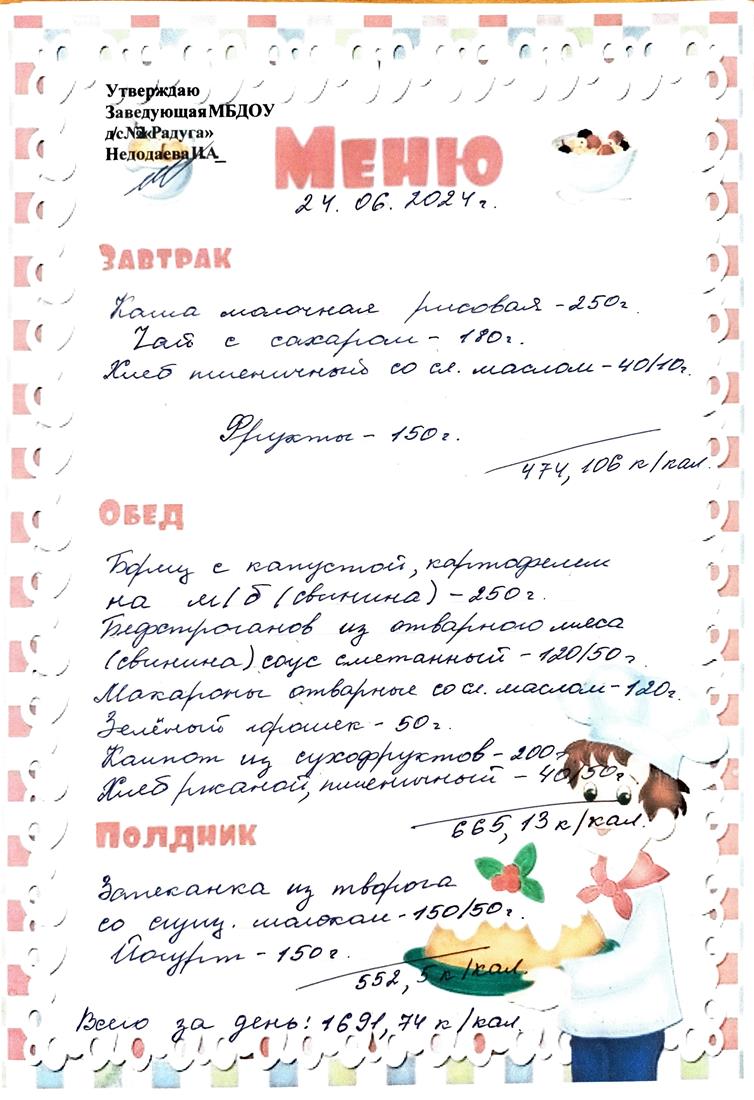 Утверждаю
Заведующая МБДОУ
д/с «Радуга»
Недодаева И.А._
Меню
24. 06. 2024 г.
Завтрак
Каша молочная рисовая - 250 г.
Чай с сахаром - 180 г.
Хлеб пшеничный со сл. маслом - 40/10 г.
Фрукты - 150 г.
474, 106 к/кал.
Обед
Борщ с капустой, картофелем
на м/б (свинина) - 250 г.
Бефстроганов из отварного мяса
(свинина) соус сметанный - 120/50 г.
Макароны отварные со сл. маслом - 120 г.
Зелёный горошек - 50 г.
Компот из сухофруктов - 200 г
Хлеб ржаной, пшеничный - 40/50 г.
665, 13 к/кал.
Полдник
Запеканка из творога
со сгущ. молоком - 150/50 г.
Йогурт - 150 г.
552, 5 к/кал.
Всего за день: 1691, 74 к/кал.